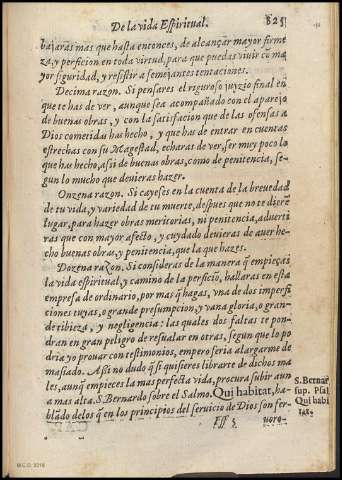 De la vida Espiritual. 825
bajaras mas que hasta entonces, de alcançar mayor firme
za, y perficion en toda virtud, para que puedas viuir cũ ma
yor siguridad, y resistir a semejantes tentaciones.
Decima razon. Si pensares el riguroso juyzio final en
que te has de ver, aunque sea acompañado con el aparejo
de buenas obras, y con la satisfacion que de las ofensas a
Dios cometidas has hecho, y que has de entrar en cuentas
estrechas con su Magestad, echaras de ver, ser muy poco lo
que has hecho, assi de buenas obras, como de penitencia, se-
gun lo mucho que deuieras hazer.
Onzena razon. Si cayeses en la cuenta de la breuedad
de tu vida, y variedad de tu muerte, despues que no te dierẽ
lugar, para hazer obras meritorias, ni penitencia, aduerti
ras que con mayor afecto, y cuydado deuieras de auer he-
cho buenas obras, y penitencia, que la que hazes.
Dozena razon. Si consideras de la manera q̃ empieçã
la vida espiritual, y camino de la perficiõ, hallaras en esta
empresa de ordinario, por mas q̃ hagas, vna de dos imperfi
ciones tuyas, o grande presumpcion, y vana gloria, o gran-
de tibieza, y negligencia: las quales dos faltas te pon-
dran en gran peligro de resualar en otras, segun que lo po
dria yo prouar con testimonios, empero seria alargarme de
masiado. Assi no dudo q̃ si quisieres librarte de dichos ma
les, aunq̃ empieces la mas perfecta vida, procura subir aun
a mas alta. S. Bernardo sobre el Salmo. Qui habitat, ha-
blãdo de los q̃ en los principios del seruicio de Dios son fer-
S. Bernar
sup. Psal
Qui habi
tat.
Fff 5 uoro-